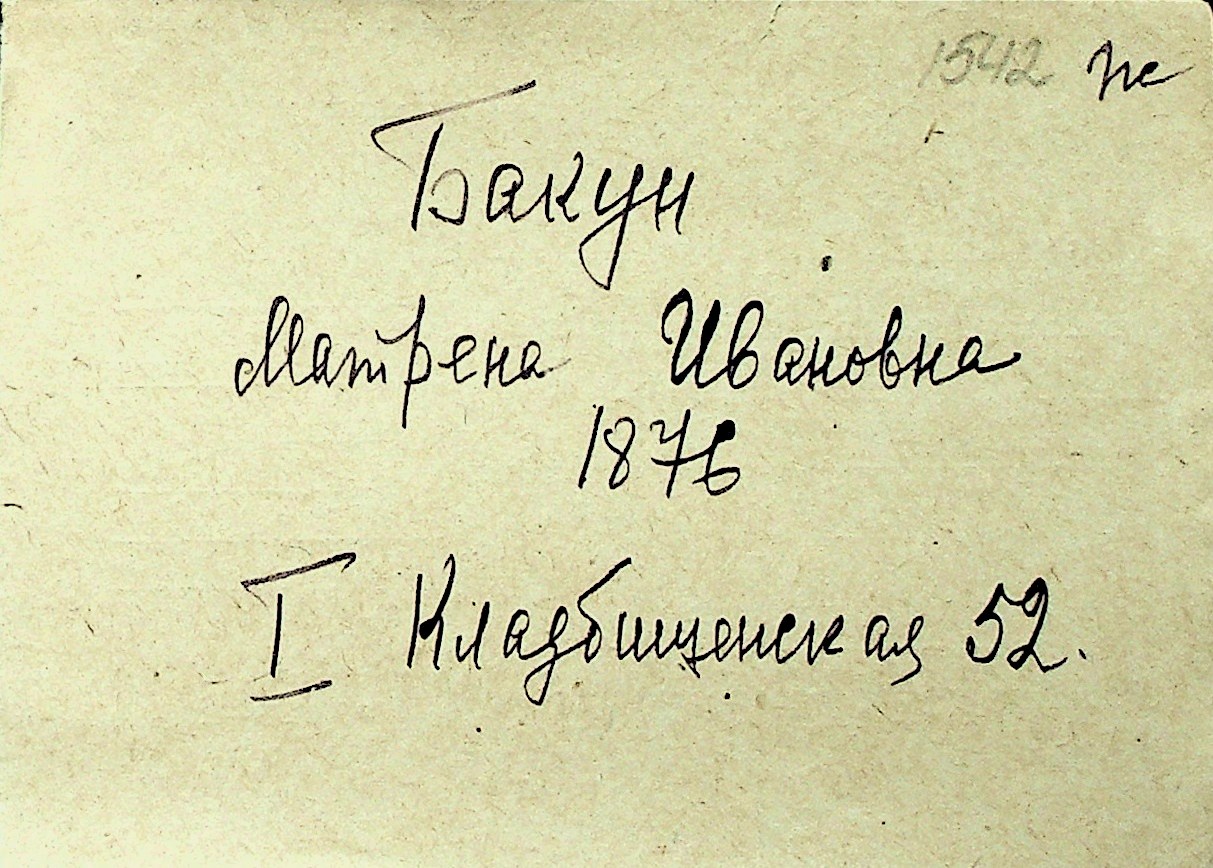 1542
Бакун
Матрена Ивановна
1876
I Кладбищенская 52.